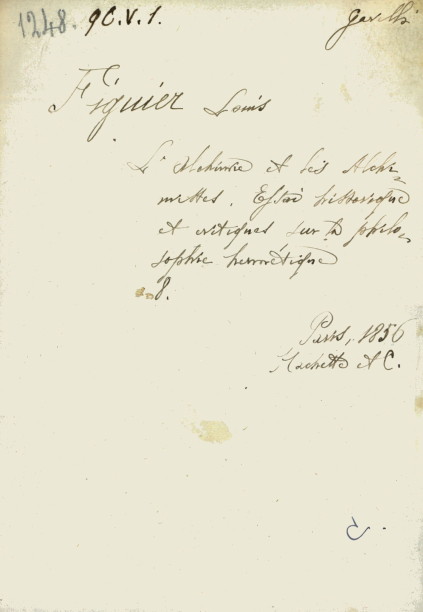 1248. 9C.V.1.
Figuier Louis
L'alchimie et les Alchi-
mistes. Essai historique
et critiques sur la philo-
sophie hermétique
in 8.
Paris, 1856
Hachette et C.